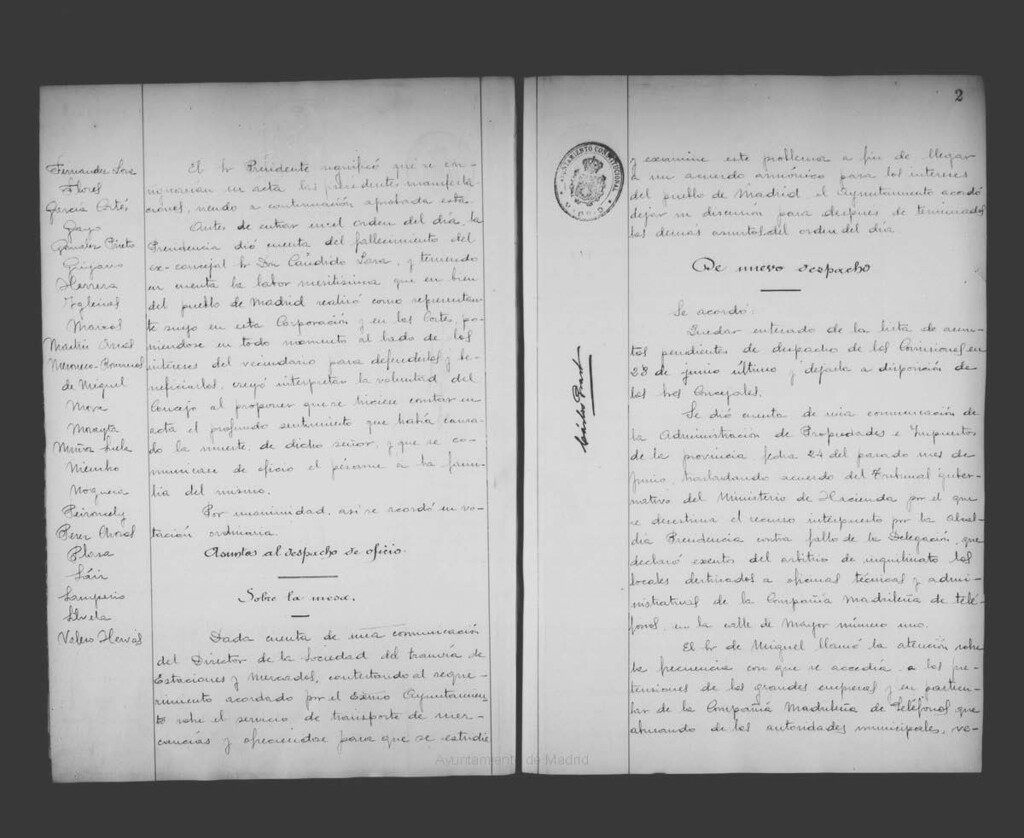 Fernandez Loza
Flores
García Cortés
Gayo
González Prieto
Herrera
Iglesias
Marcos
Martín Arias
Mesonero-Romanos
de Miguel
Mora
Morayta
Niembro
Noguera
Peironcely
Perez
Plaza
Sáiz
Samperio
Silvela
Valero Hervás
El Sr Presidente significó que se con-
signarían en acta las precedentes manifesta-
ciones, siendo a continuación aprobada esta.
Antes de entrar en el orden del día, la
Presidencia dió cuenta del fallecimiento del
ex-concejal Sr Dn Cándido Lara, y teniendo
en cuenta la labor meritísima que en bien
del pueblo de Madrid realizó como representan-
te suyo en esta Corporación y en las Cortes, po-
niendose en todo momento al lado de los
intereses del vecindario para defenderlos y be-
neficiarlos, creyó interpretar la voluntad del
Concejo al proponer que se hiciese constar en
acta el profundo sentimiento que había causa-
do la muerte de dicho señor, y que se co-
municase de oficio el pésame a la fami-
lia del mismo.
Por unanimidad, así se acordó en vo-
tación ordinaria.
Asuntos al despacho de oficio.
Sobre la mesa.
Dada cuenta de una comunicación
del Director de la Sociedad del tranvía de
Estaciones y Mercados, contestando al reque-
rimiento acordado por el Exmo Ayuntamien-
to sobre el servicio de transporte de mer-
cancías y ofreciendose para que se estudie
2
AYUNTAMIENTO CONSTITUCIONAL
MADRID
y examine este problema a fin de llegar
a un acuerdo armónico para los intereses
del pueblo de Madrid, el Ayuntamiento acordó
dejar su discusión para despues de terminados
los demas asuntos del orden del día.
De nuevo despacho
Se acordó:
Quedar enterado de la lista de asun-
tos pendientes de despacho de las Comisiones en
28 de junio último y dejarla a disposición de
los Sres Concejales.
Se dió cuenta de una comunicación de
la Administración de Propiedades e Impuestos
de la provincia, fecha 24 del pasado mes de
Junio, trasladando acuerdo del Tribunal guber-
nativo del Ministerio de Hacienda por el que
se desestima el recurso interpuesto por la Alcal-
día Presidencia contra fallo de la Delegación, que
declaró exentos del arbitrio de inquilinato los
locales destinados a oficinas técnicas y admi-
nistrativas de la Compañía Madrileña de telé-
fonos, en la calle de Mayor número uno.
El Sr de Miguel llamó la atención sobre
la frecuencia con que se accedía a las pre-
tensiones de las grandes empresas y en particu-
lar de la Compañía Madrileña de Teléfonos que
abusando de las autoridades municipales, ve-
Ayuntamiento de Madrid